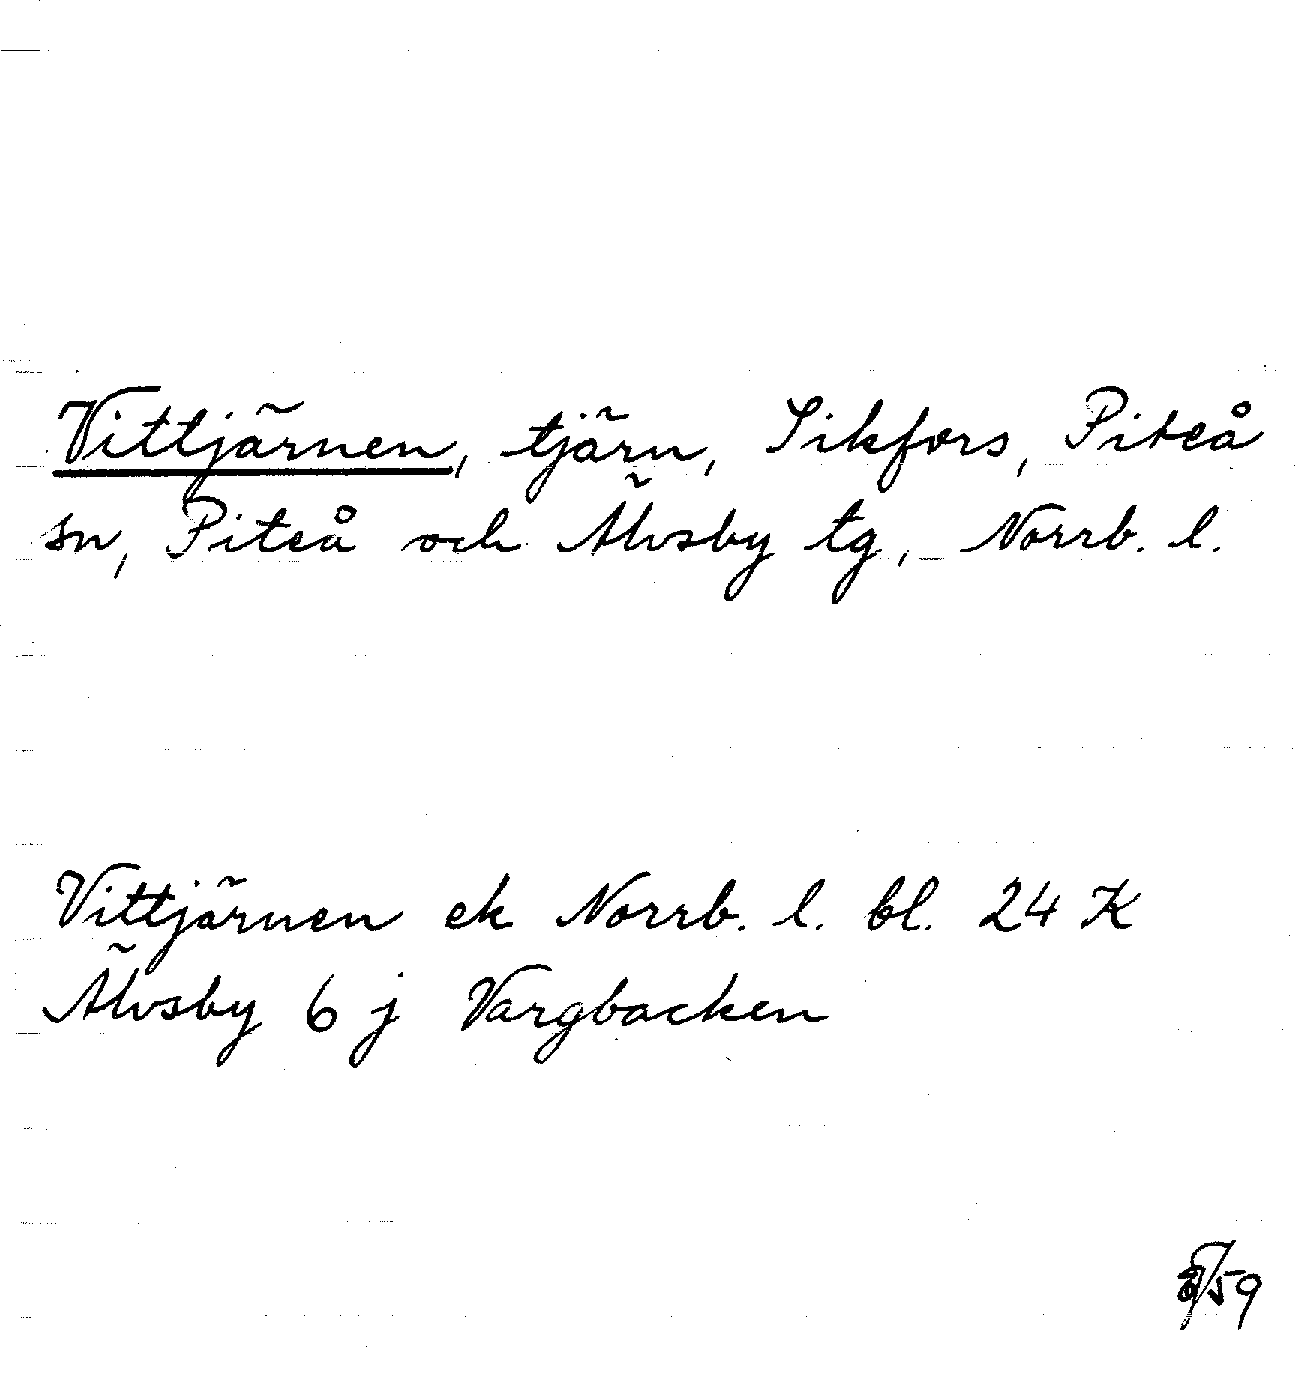 Vittjärnen, tjärn, Sikfors, Piteå
sn, Piteå och Älvsby tg, Norrb. l.
Vittjärnen ek Norrb. l. bl. 24 K
Älvsby 6 j Vargbacken